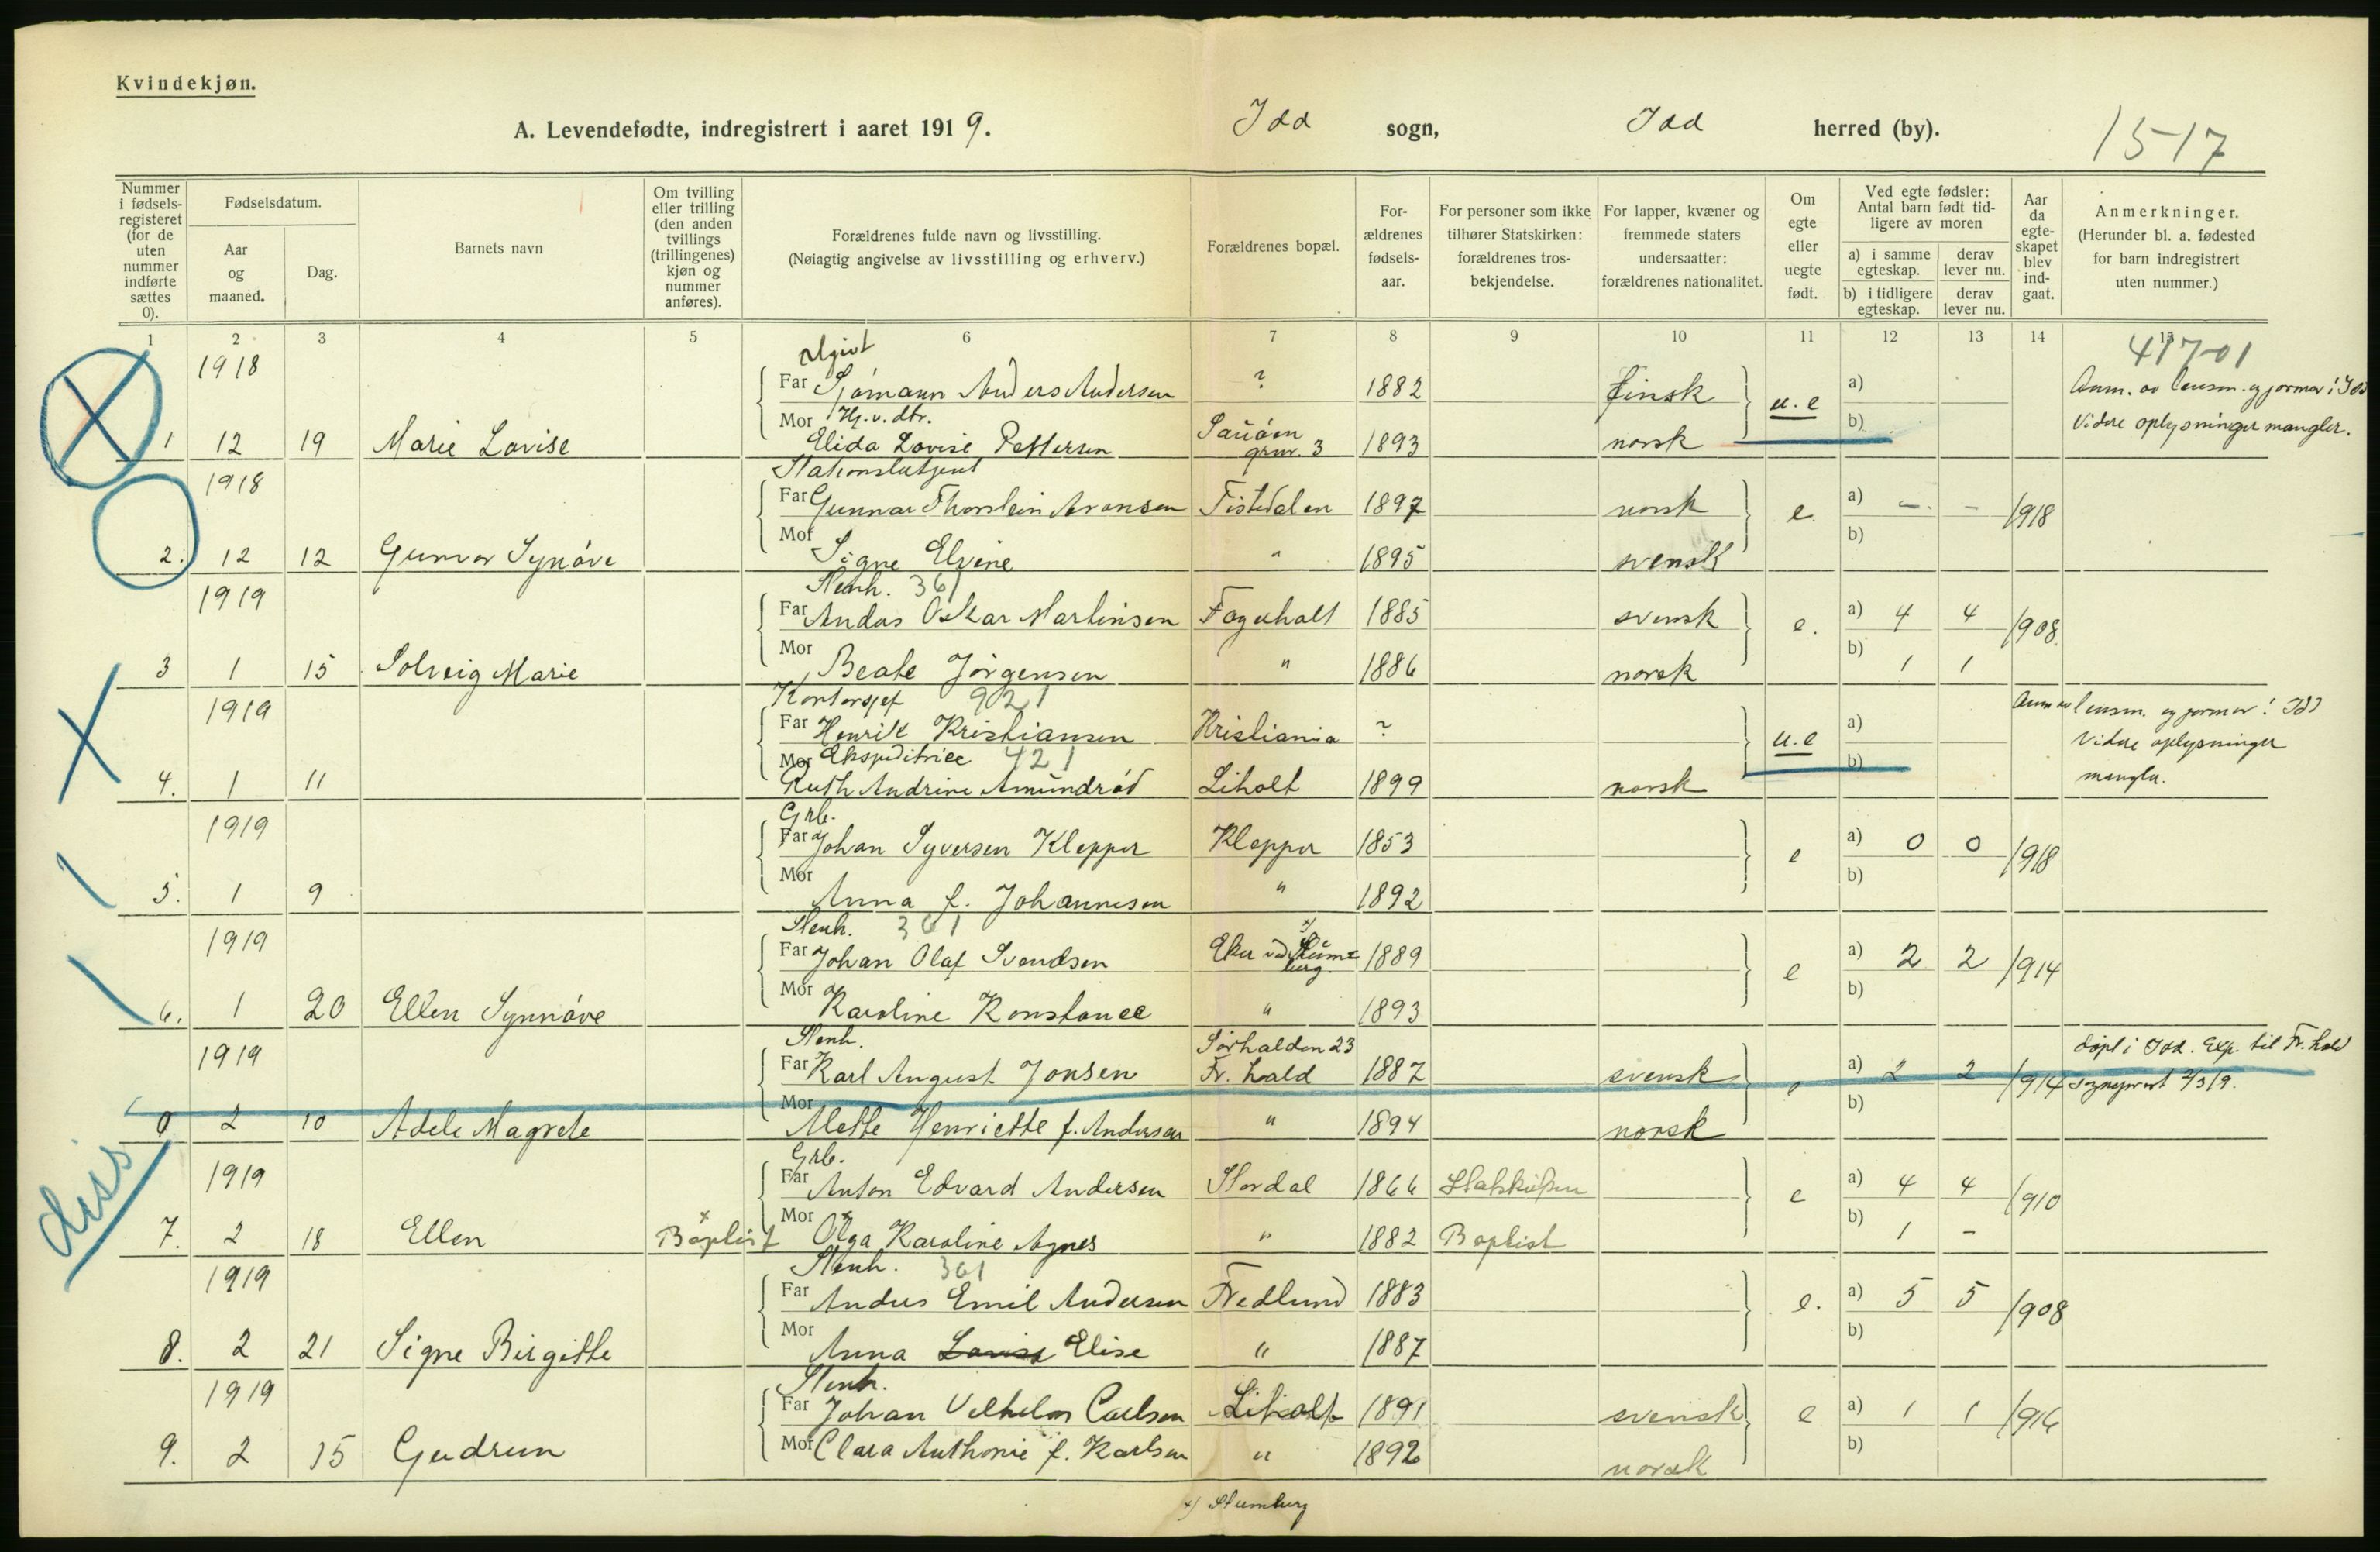 Kvindekjøn.
A. Levendefødte, indregistrert i aaret 1919. Idd sogn, Idd herred (by). 1517
Nummer i fødsels-registeret (for de uten nummer indførte sættes 0).
Fødselsdatum.
Aar og maaned.
Dag.
Barnets navn
Om tvilling eller trilling (den anden tvillings (trillingenes) kjøn og nummer anføres).
Forældrenes fulde navn og livsstilling.
(Nøiagtig angivelse av livsstilling og erhverv.)
Forældrenes bopæl.
For-ældrenes fødsels-aar.
For personer som ikke tilhører Statskirken: forældrenes tros-bekjendelse.
For lapper, kvæner og fremmede staters undersaatter: forældrenes nationalitet.
Om egte eller uegte født.
Ved egte fødsler: Antal barn født tid-ligere av moren
a) i samme egteskap. derav lever nu.
b) i tidligere egteskap. derav lever nu.
Aar da egte-skapet blev ind-gaat.
Anmerkninger.
(Herunder bl. a. fødested for barn indregistrert uten nummer.)
1 2 3 4 5 6 7 8 9 10 11 12 13 14 15
417-01
1918 ugivt
Far Sjømann Anders Andersen ? 1882 finsk u.e a)
Anm. av lensm. og jormor i Idd
Mor Hj. v. dtr. b) Videre oplysninger mangler.
1 12 19 Marie Lovise Elida Lovise Pettersen grur. 3 1893 norsk
1918 Stationsbetjent
Far Gunnar Thorstein Aronsen Tistedalen 1897 norsk e. a) — — 1918
Mor b)
2. 12 12 Gunvor Synöve Signe Elvine " 1895 svensk
1919 Stenh. 361
Far Andas Oskar Martinsen Fagerholt 1885 svensk e. a) 4 4 1908
Mor b) 1 1
3 1 15 Solveig Marie Beate Jörgensen " 1886 norsk
1919 Kontorsjef 921
Far Henrik Kristiansen Kristiania ? u.e a)
Anm av lensm. og jormor i Idd
Vidre oplysninger
Mor Ekspeditrice 421 b)
mangler.
4. 1 11 Ruth Andrine Amundröd Liholt 1899 norsk
1919 Grb.
Far Johan Syversen Klepper Klepper 1853 e a) 0 0 1918
Mor b)
5. 1 9 Anna f. Johannesen " 1892
1919 Stenh. 361
Far Johan Olaf Svendsen Eker ved 1889 e a) 2 2 1914
Mor b)
6. 1 20 Ellen Synnöve Karoline Konstance " 1893
1919 Stenh. Sørhalden 23
døpt i Idd. Exp. til Fr. hald
Far Karl August Jonsen Fr. hald 1887 svensk e a) 2 2 1914 sogneprest 2/3 19.
Mor b)
0 2 10 Adele Magrete Mette Henriette f. Andersen " 1894 norsk
1919 Grb.
Far Anton Edvard Andersen Stordal 1866 Statskirken e a) 4 4 1910
Mor b) 1 —
diss
7. 2 18 Ellen x Baptist x Olga Karoline Agnes " 1882 Baptist
1919 Stenh. 361
Far Anders Emil Andersen Nedlund 1883 e. a) 5 5 1908
Mor b)
8. 2 21 Signe Birgitte Anna Lovise Elise " 1887
1919 Stenh.
Far Johan Velhelm Carlsen Liholt 1891 svensk e a) 1 1 1916
Mor Clara Anthonie f. Karlsen " 1892 norsk b)
9. 2 15 Gudrun
x) Stumberg